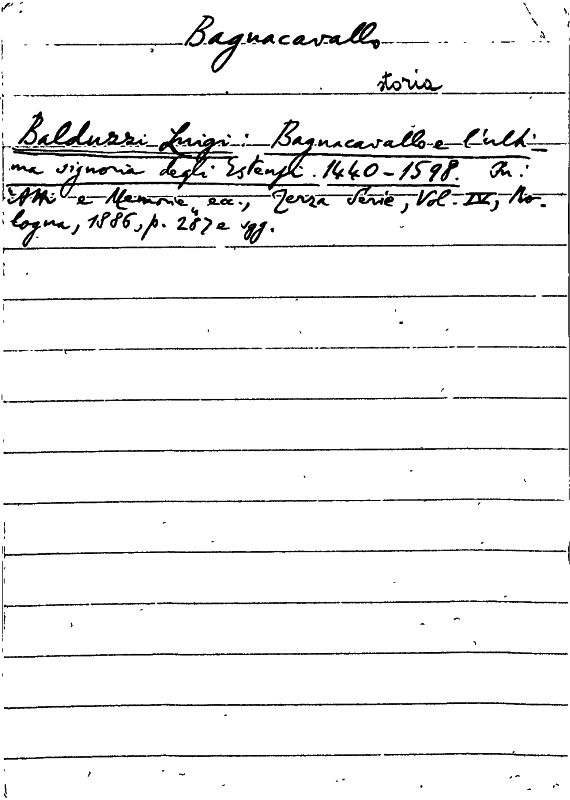 Bagnacavallo
storia
Balduzzi Luigi: Bagnacavallo e l'ulti-
ma signoria degli Estensi. 1440-1598. In:
Atti e Memorie ecc., Terza Serie, Vol. IV, Bo-
logna, 1886, p. 287 e sgg.